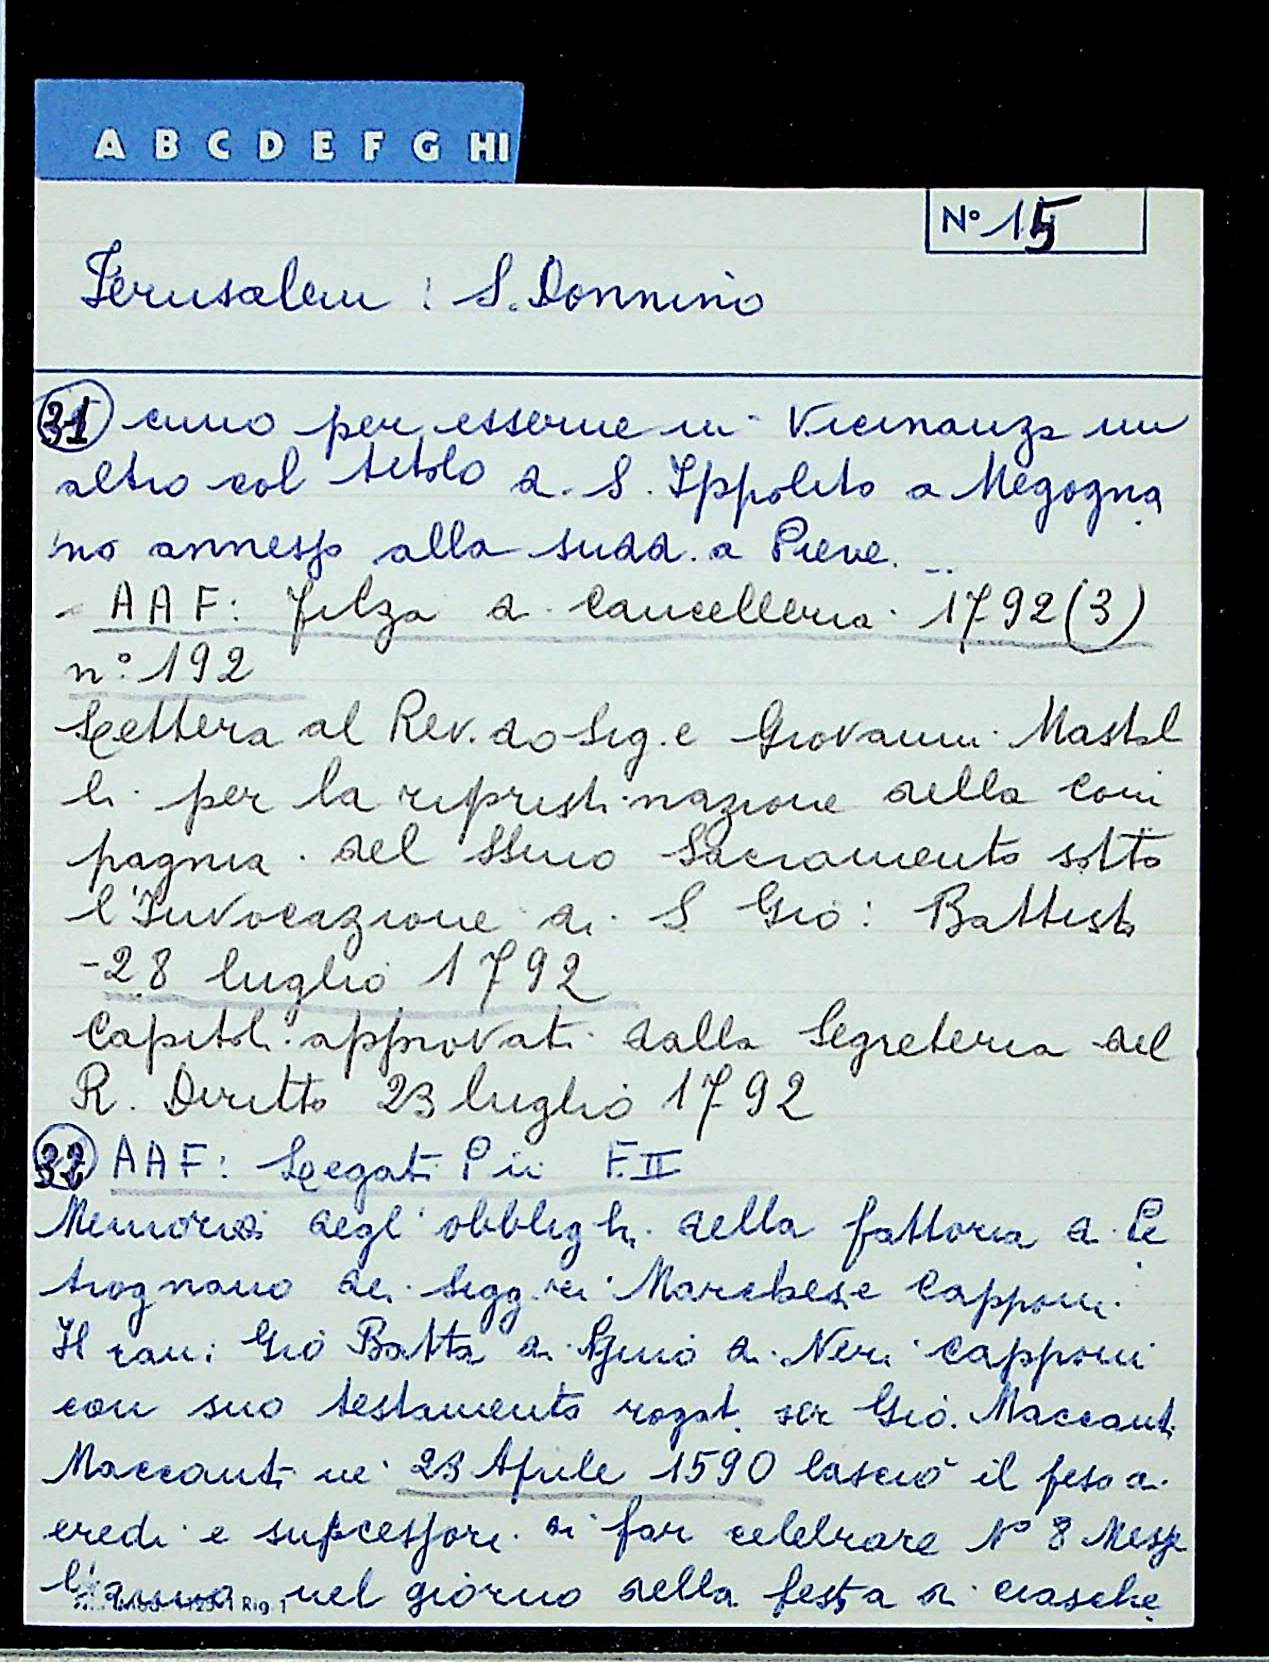 A B C D E F G HI
N° 15
Jerusalem : S. Donnino
31 cuno per esserne in Vicinanza un
altro col titolo di S. Ippolito a Megogna
no annesso alla sudd.a Pieve.
- AAF: filza di Cancelleria 1792(3)
n° 192
Lettera al Rev.do Sig.e Giovanni Mastel
li per la ripristinazione della Com
pagnia del SSmo Sacramento sotto
l'Invocazione di S Gio: Battista
-28 luglio 1792
Capitoli approvati dalla Segreteria del
R. Diritto 23 luglio 1792
32 AAF: Legati Pii F.II
Memoria degl'obblighi della fattoria di Pe
trognano dei Sigg.ri Marchese Capponi
Il can: Gio Batta di Agnio di Neri Capponi
con suo testamento rogat. ser Gio. Maccanti
Maccanti ne 23 Aprile 1590 lasciò il peso a
eredi e successori di far celebrare N° 8 Messe
l'anno nel giorno della festa di ciasche
Rig. 1